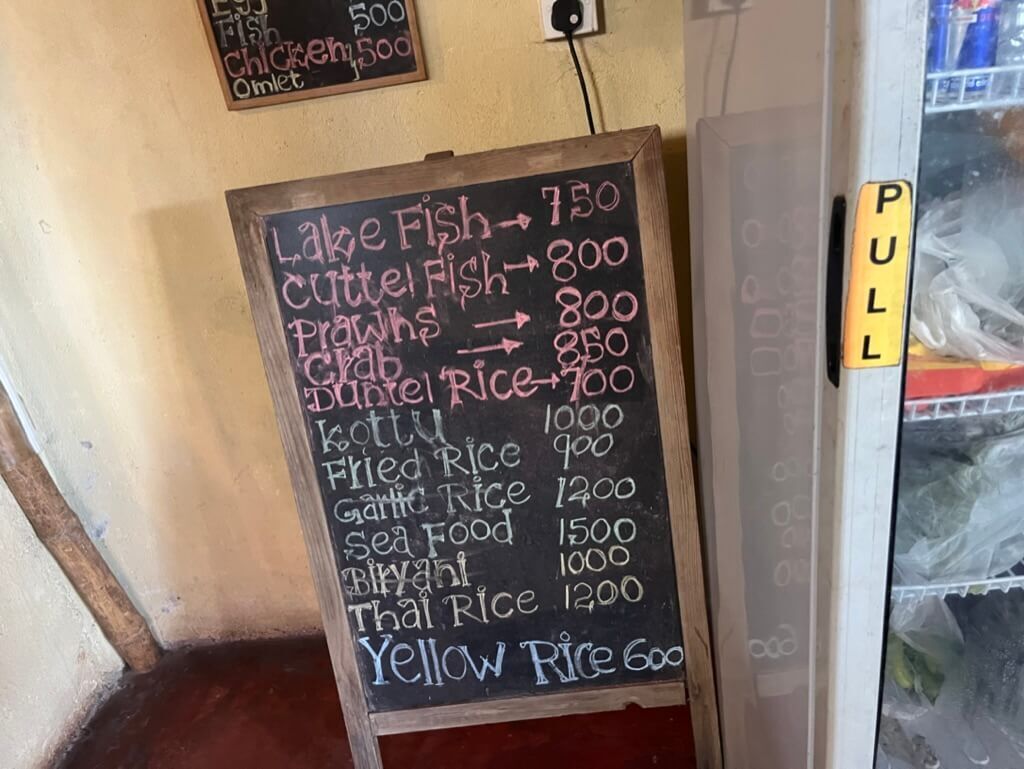 Fish 500
Chicken 500
Omlet
Lake Fish → 750
Cuttel Fish → 800
Prawns → 800
Crab → 850
Duntel Rice → 700
Kottu 1000
Fried Rice 900
Garlic Rice 1200
Sea Food 1500
Biryani 1000
Thai Rice 1200
Yellow Rice 600
PULL